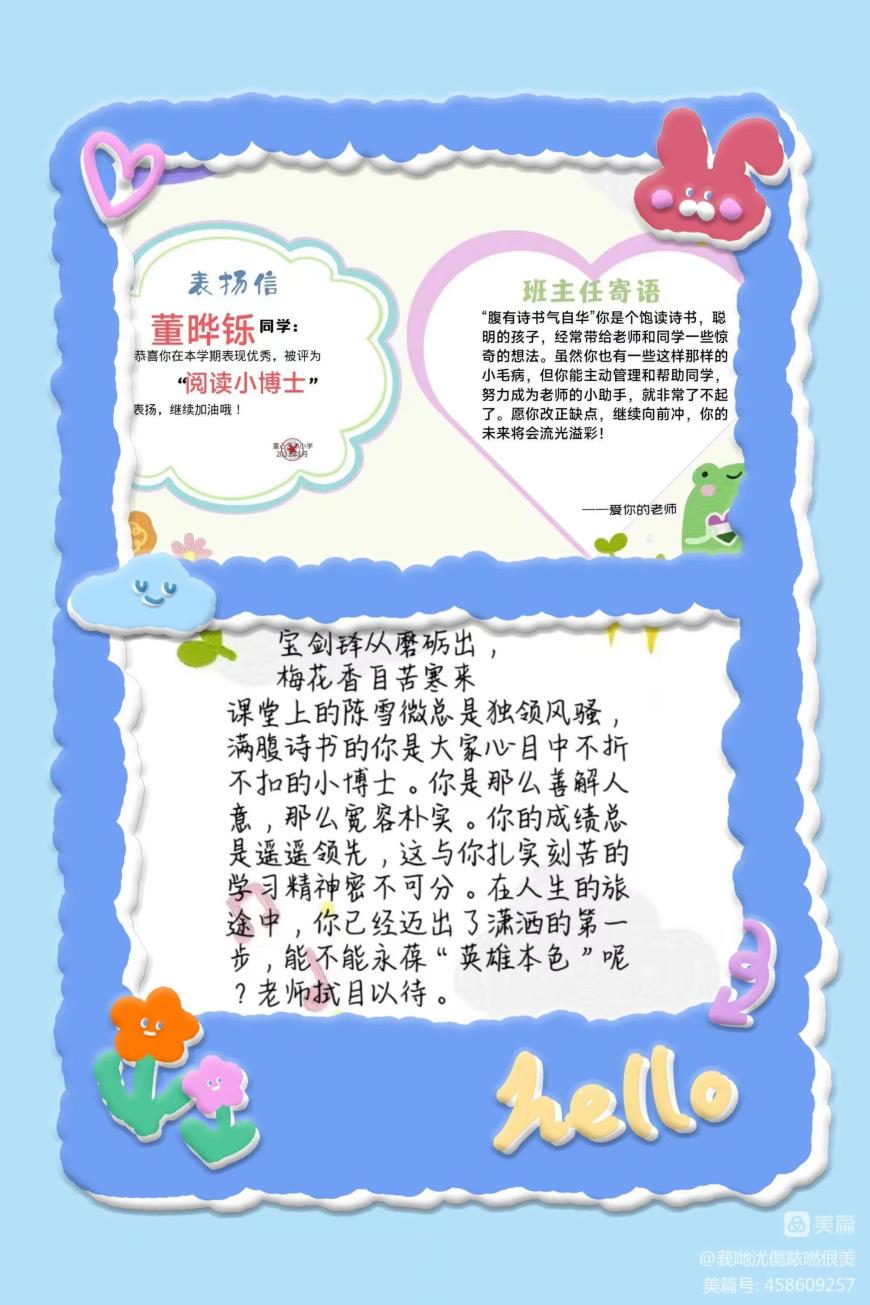 表扬信
董晔铄同学：
恭喜你在本学期表现优秀，被评为
“阅读小博士”
表扬，继续加油哦！
班主任寄语
“腹有诗书气自华”你是个饱读诗书，聪
明的孩子，经常带给老师和同学一些惊
奇的想法。虽然你也有一些这样那样的
小毛病，但你能主动管理和帮助同学，
努力成为老师的小助手，就非常了不起
了。愿你改正缺点，继续向前冲，你的
未来将会流光溢彩！
——爱你的老师
宝剑锋从磨砺出，
梅花香自苦寒来
课堂上的陈雪微总是独领风骚，
满腹诗书的你是大家心目中不折
不扣的小博士。你是那么善解人
意，那么宽容朴实。你的成绩总
是遥遥领先，这与你扎实刻苦的
学习精神密不可分。在人生的旅
途中，你已经迈出了潇洒的第一
步，能不能永葆“英雄本色”呢
？老师拭目以待。
hello
美篇
美篇号: 458609257